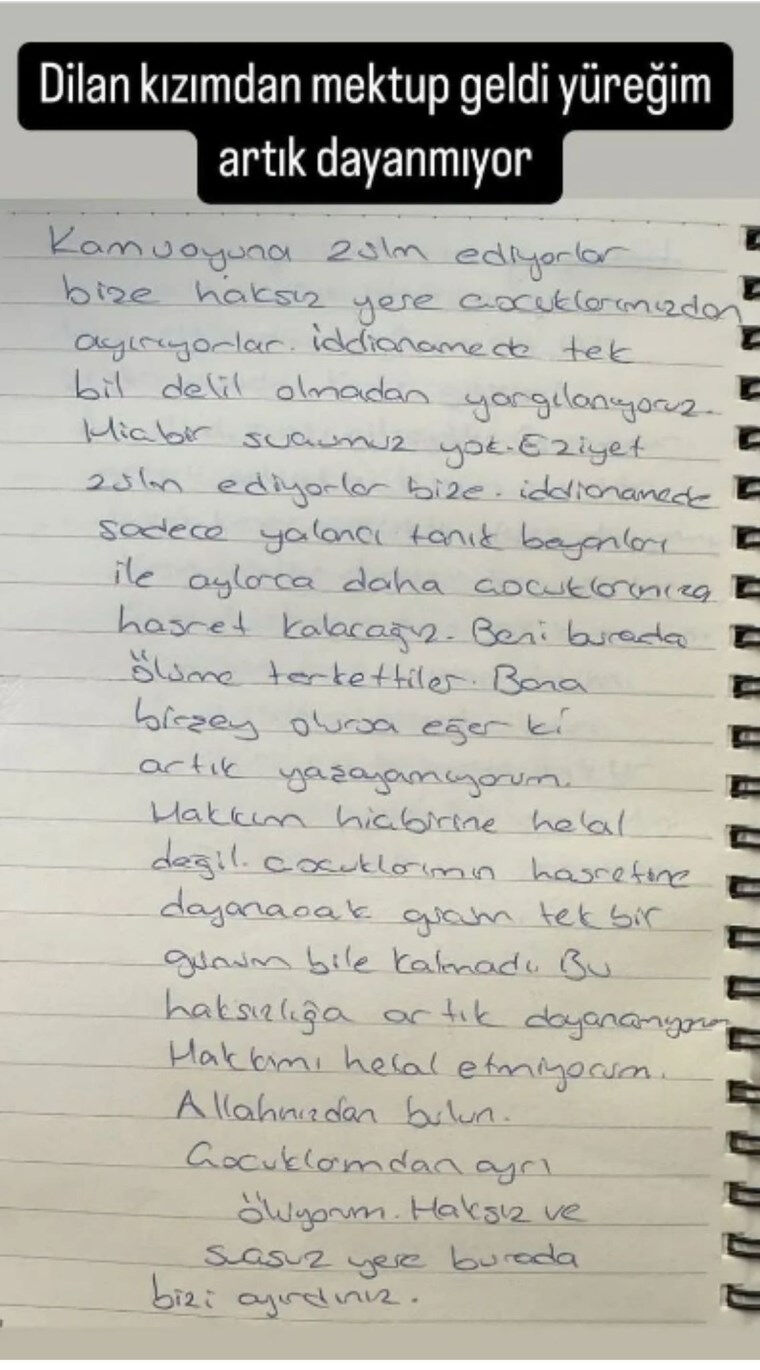 Dilan kızımdan mektup geldi yüreğim
artık dayanmıyor
Kamuoyuna zulm ediyorlar
bize haksız yere çocuklarımızdan
ayırıyorlar. iddianamede tek
bil delil olmadan yargılanıyoruz.
Hiçbir suçumuz yok. Eziyet
zulm ediyorlar bize. iddianamede
sadece yalancı tanık beyanları
ile aylarca daha çocuklarımıza
hasret kalacağız. Beni burada
ölüme terkettiler. Bana
birşey olursa eğer ki
artık yaşayamıyorum.
Hakkım hiçbirine helal
değil. çocuklarımın hasretine
dayanacak gram tek bir
günüm bile kalmadı. Bu
haksızlığa artık dayanamıyorum
Hakkımı helal etmiyorum.
Allahınızdan bulun.
Çocuklarımdan ayrı
ölüyorum. Haksız ve
suçsuz yere burada
bizi ayırdınız.